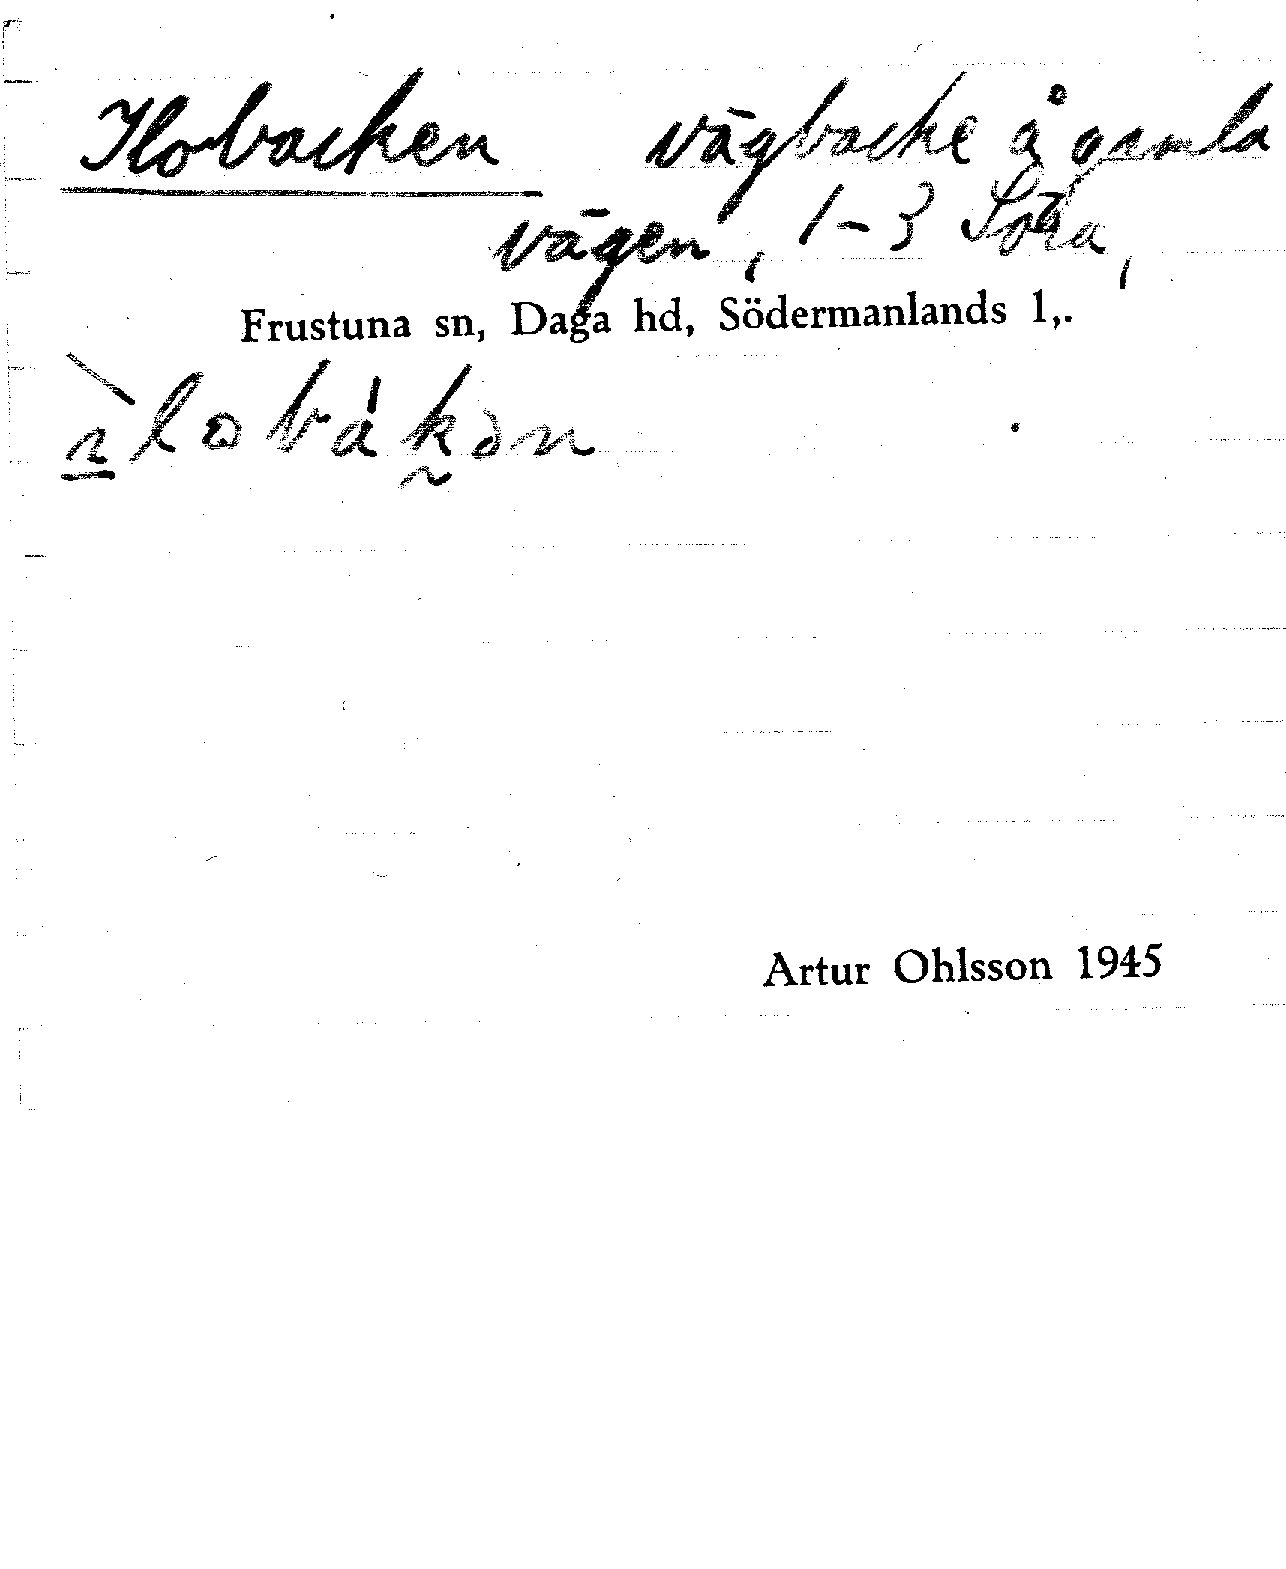 Ilobacken vägbacke å gamla
vägen, 1-3 Söra,
Frustuna sn, Daga hd, Södermanlands l,.
ìlobákən
Artur Ohlsson 1945